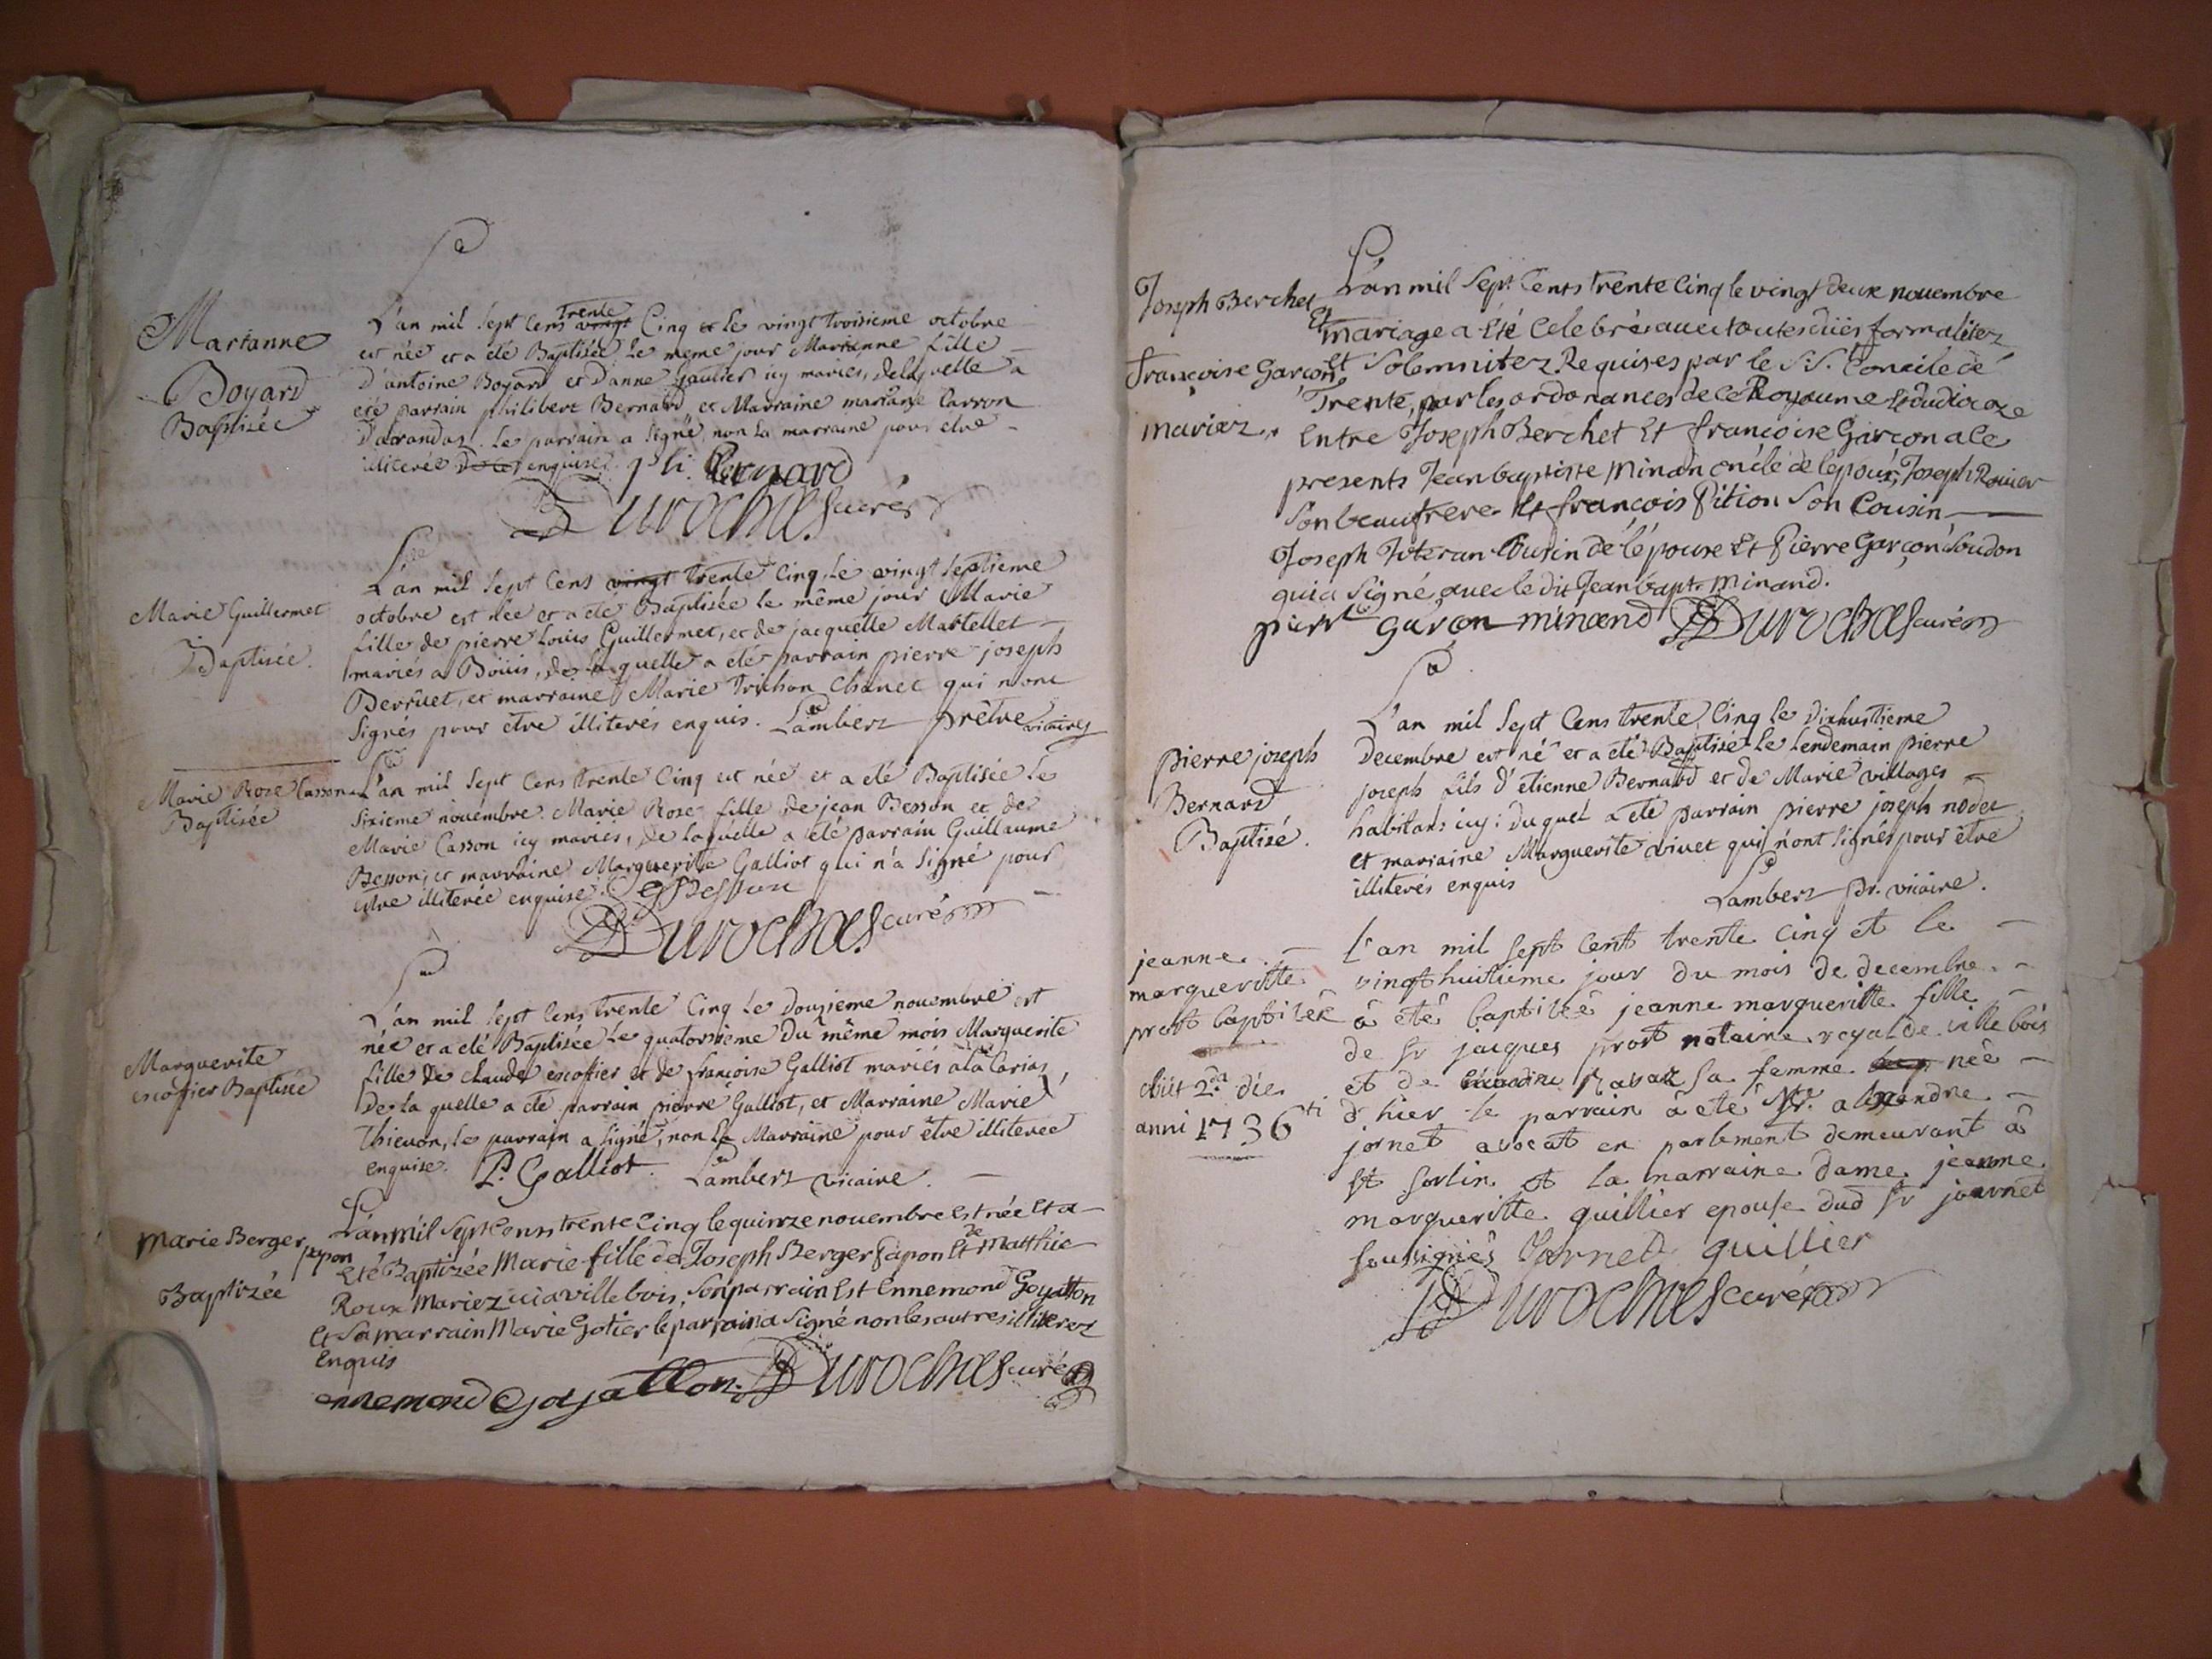 Marianne
Boyard
Baptisée
L'an mil sept cens vingt trente Cinq et le vingt troisieme octobre
est née et a eté Baptisée le meme jour Marianne fille
D'antoine Boyard et D'anne Gaulier icy mariés, de laquelle a
eté parrain philibert Bernard, et Marraine marianne Carron
D'abrandaz. Le parrain a signé, non la marraine pour etre
illiterée enquise. phi. Bernard
Duroches curé
Marie Guillermet
Baptisée.
L'an mil sept Cens vingt trente Cinq, le vingt septieme
octobre est née et a eté Baptisée le même jour Marie
fille de pierre Louis Guillermet, et de jacquette Martellet
mariés a Boüis, de laquelle a eté parrain pierre joseph
Berruet, et marraine Marie Trichon Chanet qui n'ont
signés pour etre illiterés enquis. Lambert prêtre vicaire
Marie Rose Casson
Baptisée
L'an mil sept Cens trente Cinq est née et a eté Baptisée le
sixieme nouembre Marie Rose fille de jean Besson et de
Marie Casson icy mariés, de laquelle a eté parrain Guillaume
Besson, et marraine Marguerite Galliot qui n'a signé pour
estre illiterée enquise. G Besson
Duroches curé
Marguerite
escoffier Baptisée
L'an mil sept Cens trente Cinq Le Douzieme nouembre est
née et a eté Baptisée Le quatorzieme Du même mois Marguerite
fille de claude escoffier et de françoise Galliot mariés a la Carias,
De la quelle a eté parrain pierre Galliot, et Marraine Marie
Thieuon, le parrain a signé, non la Marraine pour être illiterée
enquise. P. Galliot. Lambert vicaire.
Marie Berger
papon
Baptizée
L'an mil Sept Cens trente Cinq le quinze nouembre Est née Et a
Eté Baptizée Marie fille de Joseph Berger papon Et de Matthie
Roux Mariez ici a villebois, Son parrain Est Ennemond Goyatton
Et Sa marrain Marie Gotier le parrain a Signé non les autres illiterez
Enquis
ennemond Gojatton. Duroches curé
Joseph Berchet
Et
francoise Garçon
mariez.
L'an mil Sept Cents trente Cinq le vingt deux nouembre
mariage a Eté Celebré auec toutes düës formalitez
Et Solemnitez Requises par le S.S. Concile de
Trente, par les ordonances de ce Royaume Et du diocoze
Entre Joseph Berchet Et francoise Garçon a ce
presents Jean baptiste Minan oncle de lepoux, Joseph Rouier
Son beaufrere Et francois Pition Son Cousin
Joseph Cousin de lépouse Et Pierre Garçon Soudon
qui a Signé auec le dit Jean bapt. Minand.
pierre garçon minand Duroches curé
pierre joseph
Bernard
Baptisé.
L'an mil sept Cens trente Cinq Le Dixhuitieme
Decembre est né et a eté Baptisé le Lendemain pierre
joseph fils d'etienne Bernard et de Marie villages
habitans icy: duquel a eté parrain pierre joseph nodet
et marraine Marguerite viuet qui n'ont signés pour être
illiterés enquis
Lambert pr. vicaire.
jeanne
margueritte
prost baptisée
obiit 2.da die
anni 1736ti
L'an mil sept cent trente cinq et le
vingthuitieme jour du mois de decembre
â eté baptisée jeanne margueritte fille
de sr jacques prost notaire royal de villebois
et de Claudine Ravat sa femme née
d'hier le parrain â eté Mr. alexandre
jornet avocat en parlement demeurant â
st sorlin et la marraine dame jeanne
margueritte quillier epouse dud sr journet
soussignés Jornet quillier
Duroches curé